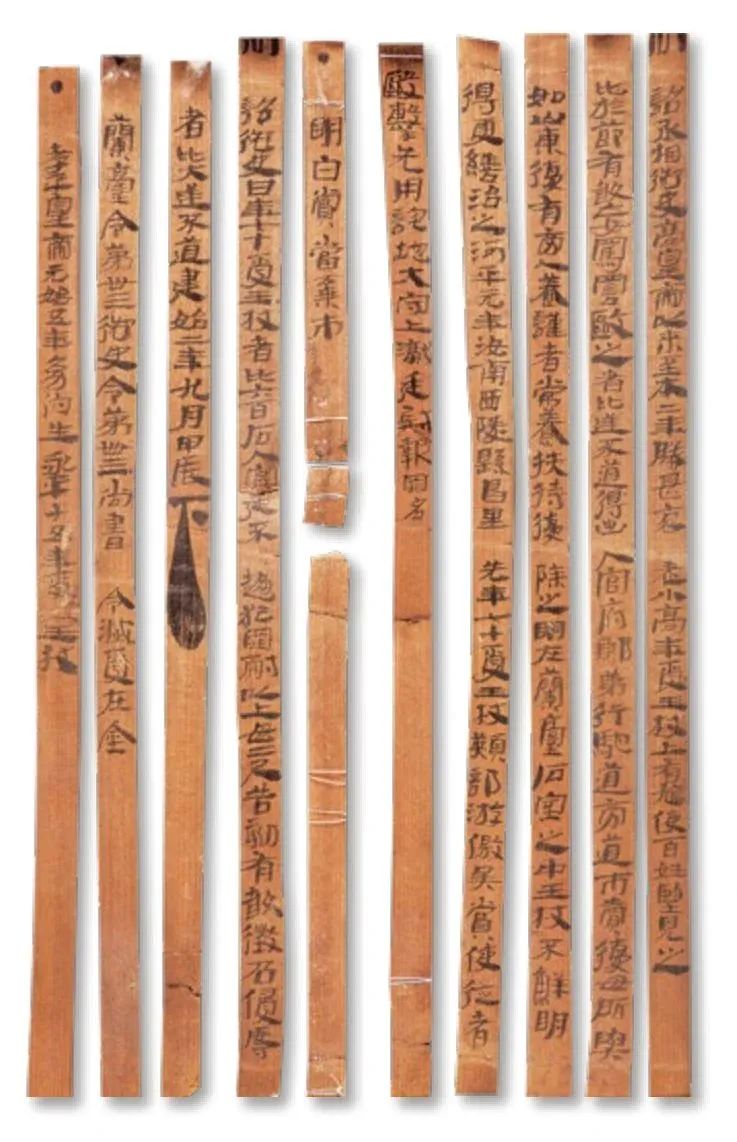 制詔丞相御史高皇帝以來至本二年勝甚哀老小高年受王杖上有鳩使百姓望見之
比於節有敢妄罵詈毆之者比逆不道得出入官府郎第行馳道旁道市賣復毋所與
如山東復有旁人養謹者常養扶持復除之明在蘭臺石室之中王杖不鮮明
得更繕治之河平元年汝南西陵縣昌里先年七十受王杖熲部游徼吳賞使從者
毆擊先用訴地大守上讞廷尉報罪名
明白賞當棄市
制詔御史曰年七十受王杖者比六百石入宮廷不趨犯罪耐以上毋二尺告劾有敢徵召侵辱
者比大逆不道建始二年九月甲辰下
蘭臺令第卅三御史令第卌三尚書令滅受在金
孝平皇帝元始五年幼伯生永平十五年受王杖